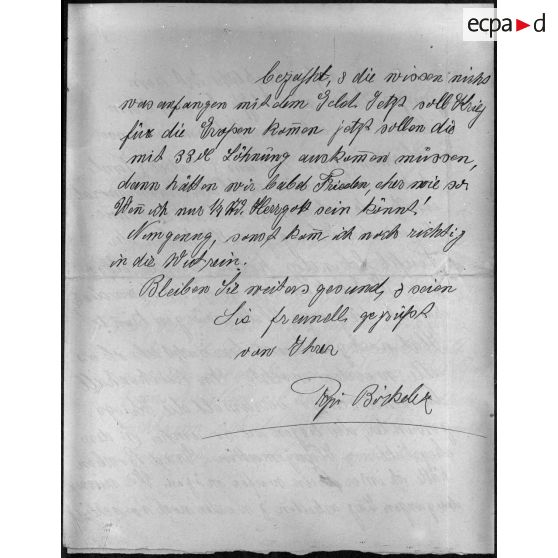 ecpad
bezahlt, & die wissen nichts
was anfangen mit dem Geld. Jetzt soll Krieg
für die Großen kommen jetzt sollen die
mit 33 Löhnung auskommen müssen,
dann hätten wir Frieden, eher wie so
Wenn ich nur 1/4 Herrgott sein könnt!
Nun genug, sonst komm ich noch richtig
in die Wut rein.
Bleiben Sie weiters gesund, & seien
Sie freundl. gegrüßt
von Ihrer